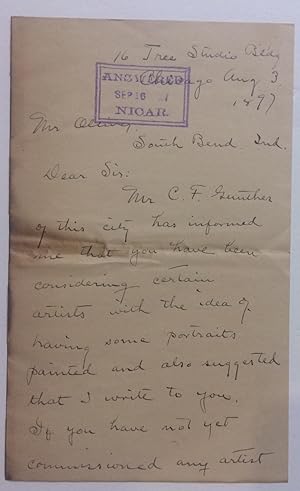 16 Tree Studio Bldg
Chicago Aug 3
1897
ANSWERED
SEP 16
NICAR.
Mr Oliver,
South Bend. Ind.
Dear Sir:
Mr C. F. Gunther
of this city has informed
me that you have been
considering certain
artists with the idea of
having some portraits
painted and also suggested
that I write to you.
If you have not yet
commissioned any artist